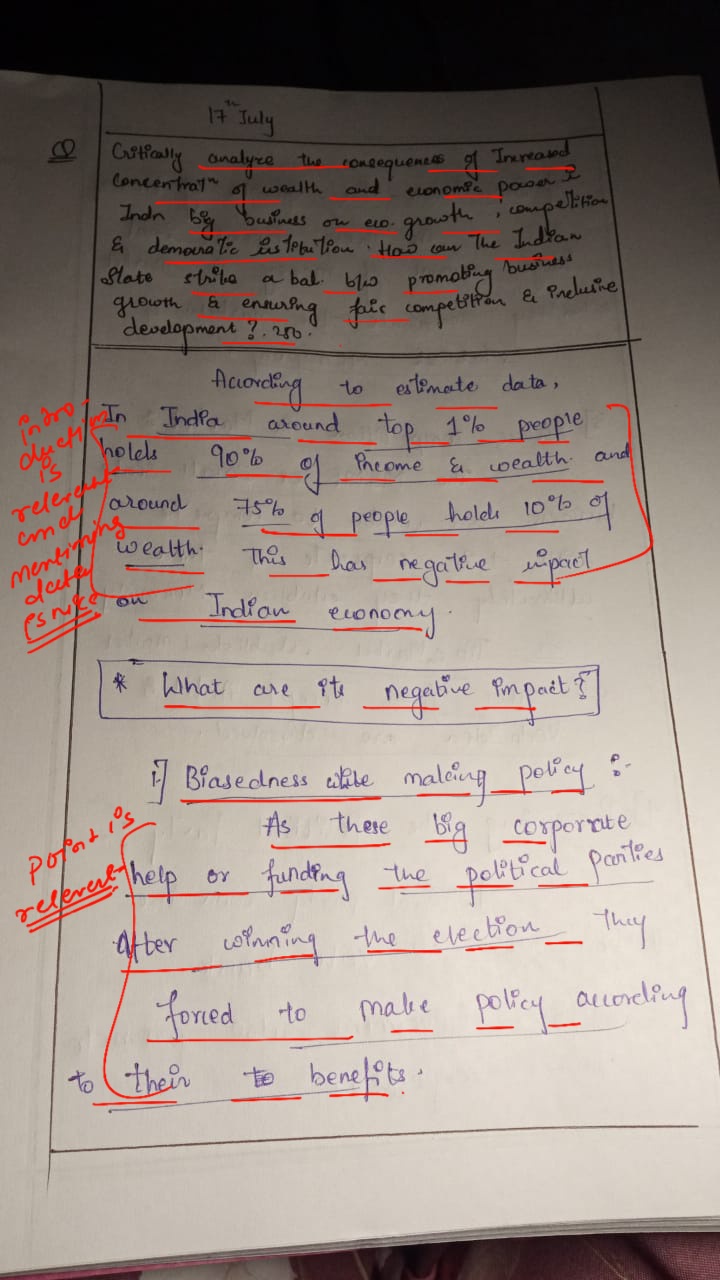 17th July
Q Critically analyze the consequences of Increased
concentratn of wealth and economic power I
Indn big business on eco. growth, competition
& democratic
state strike a bal. b/w promoting business
growth & ensuring fair competition & inclusive
development ?. 250.
How can The Indian
According to estimate data,
In India around top 1% people
holds 90% of income & wealth. and
around 75% of people holds 10% of
wealth. This has negative impact
on Indian economy.
intro-
duction
is
relevant
and
mentioning
data
is nice
* What are its negative impact?
1.] Biasedness while making policy :-
As these big corporate
help or funding the political parties
After winning the election They
forced to make policy according
to their to benefits.
point is
relevant